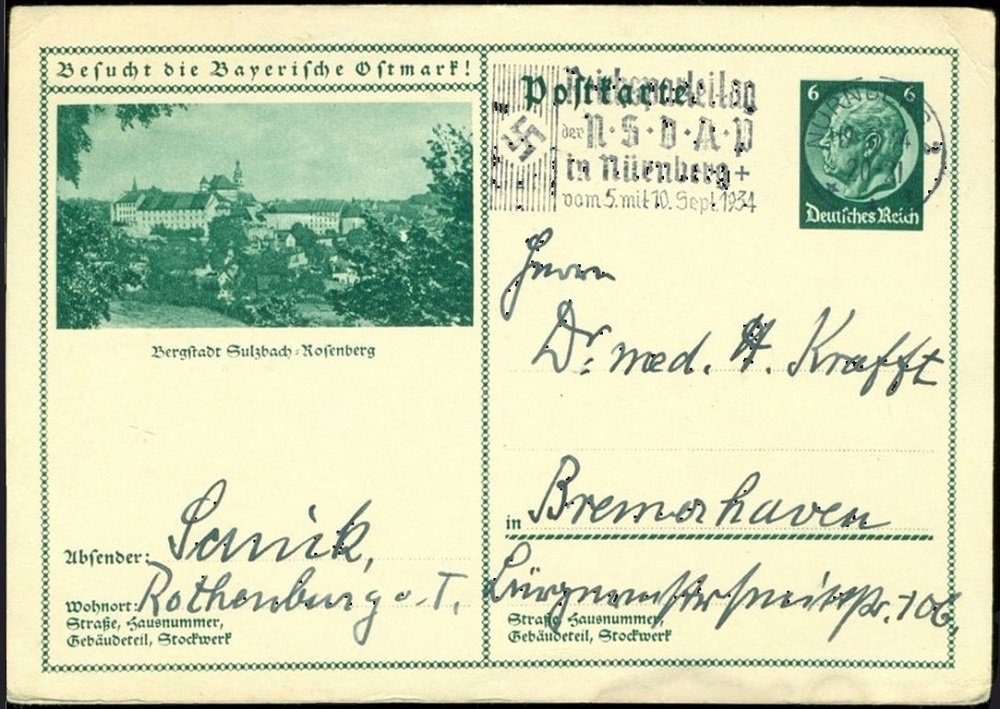 Besucht die Bayerische Ostmark!
Bergstadt Sulzbach-Rosenberg
Absender:
Rothenburg o. T.
Wohnort:
Straße, Hausnummer,
Gebäudeteil, Stockwerk
Postkarte
Reichsparteitag
der N·S·D·A·P
in Nürnberg
vom 5. mit 10. Sept. 1934
NÜRNBERG 2
6 6
Deutsches Reich
Herrn
Dr. med. H. Krafft
in Bremerhaven
Straße, Hausnummer,
Gebäudeteil, Stockwerk